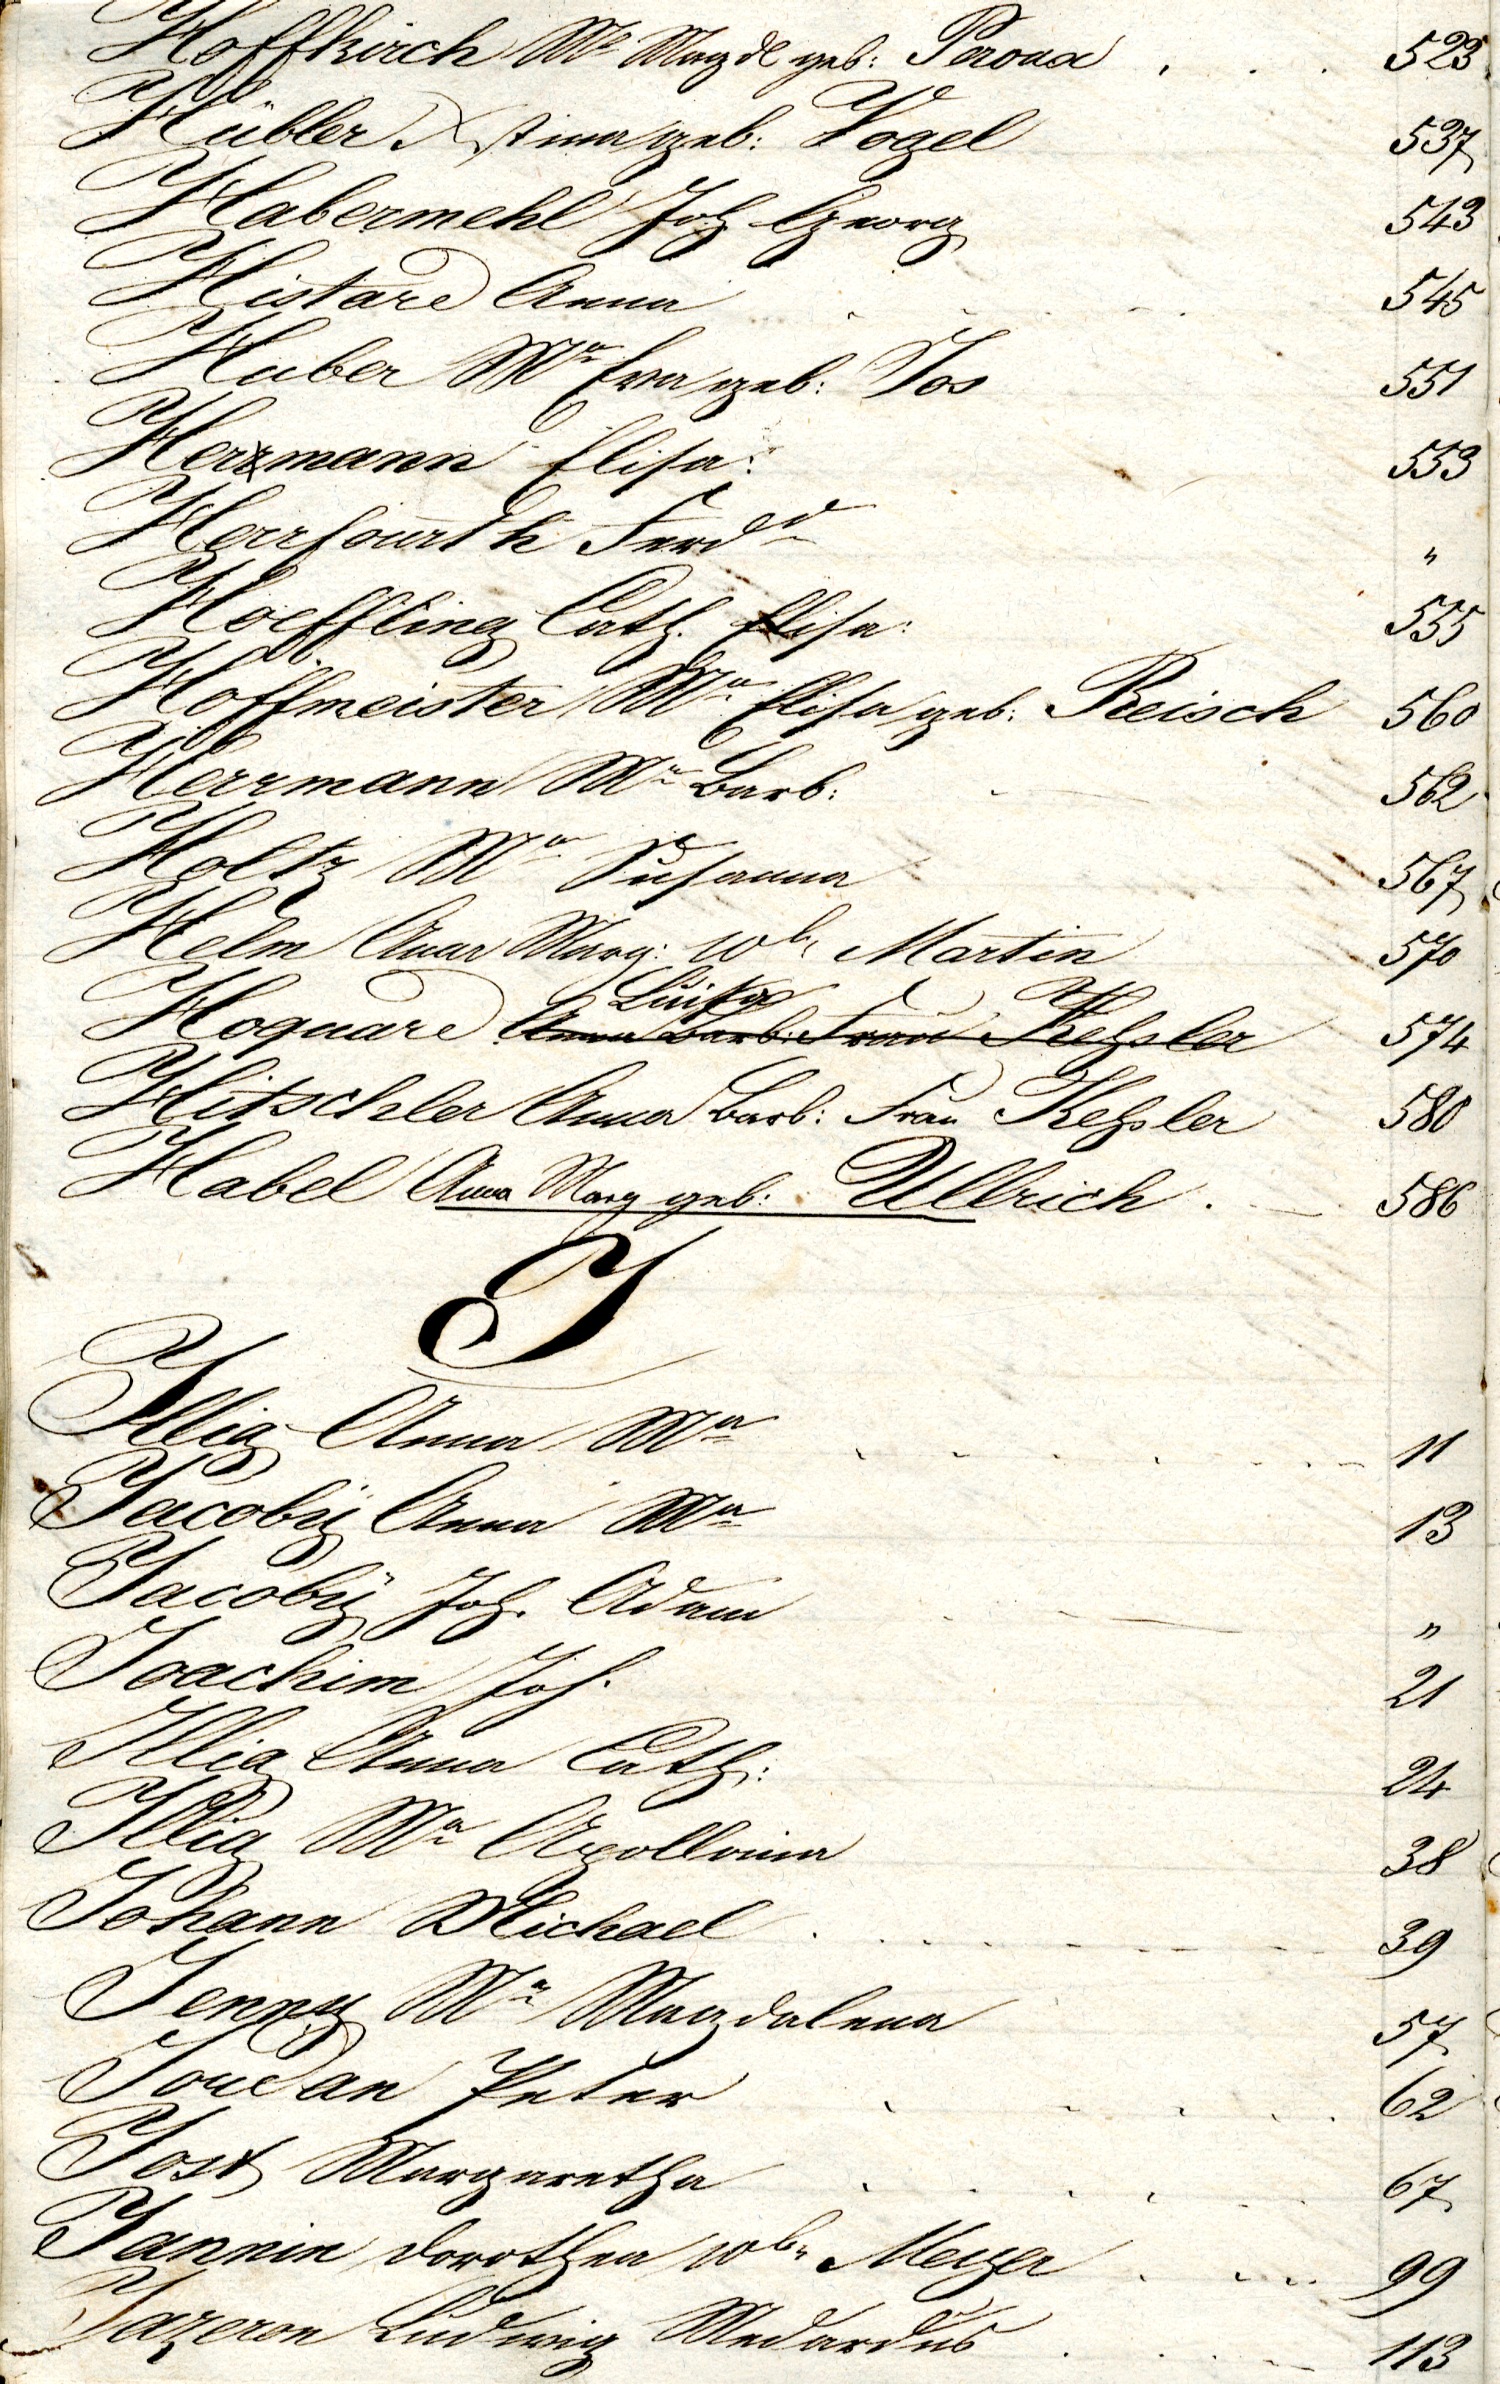 Hoffkirch Ma Magdl geb: Peroux . . . 523
Hübler Xstina geb: Vogel 537
Habermehl Joh Georg 543
Histard Anna 545
Huber Ma Eva geb: Jos 551
Herrmann Elisa: 553
Herrfourth Ferdd "
Hoeffling Cath. Elisa: 555
Hoffmeister Ma Elisa geb: Reisch 560
Herrmann Ma Barb: 562
Holtz Ma Susanna 567
Helm Anna Marg: wbe Martin 570
Luisa
Hoquard Anna Barb: Frau Keßler 574
Hitschler Anna Barb: Frau Keßler 580
Habel Anna Marg geb: Ullrich . 586
J
Illig Anna Ma 11
Jacoby Anna Ma 13
Jacoby Joh. Adam "
Joachim Joh. 21
Illig Anna Cath: 24
Illig Ma Apollonia 38
Johann Michael 39
Jenny Ma Magdalena 57
Jourdan Peter 62
Jost Margaretha 67
Jannin Dorothea wbe Meyer 99
Jazeron Ludwig Medardus 113